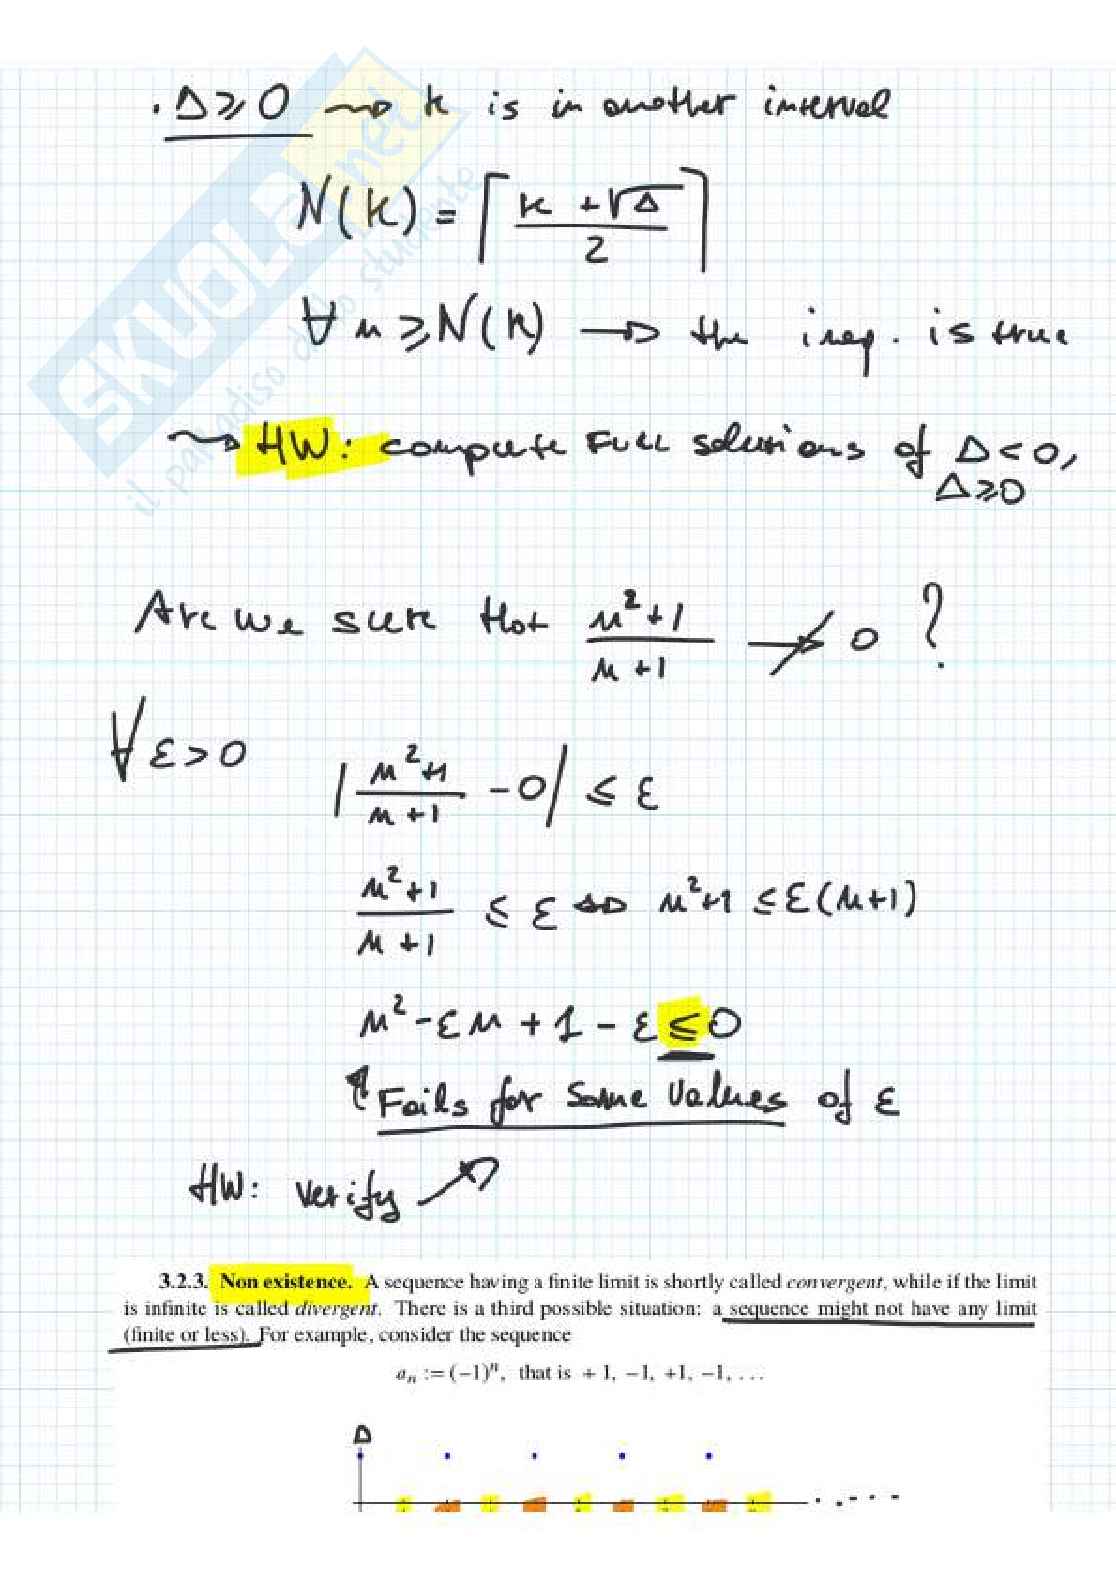 . Δ ≥ 0 ⇝ k is in another interval
N(k) = ⌈ (k + √Δ) / 2 ⌉
∀ n ≥ N(k) → the ineq. is true
⇝ HW: compute FULL solutions of Δ < 0,
Δ ≥ 0
Are we sure that (n² + 1) / (n + 1) ↛ 0 ?
∀ ε > 0
| (n² + 1) / (n + 1) - 0 | ≤ ε
(n² + 1) / (n + 1) ≤ ε ⇔ n² + 1 ≤ ε (n + 1)
n² - ε n + 1 - ε ≤ 0
↑ Fails for some values of ε
HW: verify ↗
3.2.3. Non existence. A sequence having a finite limit is shortly called convergent, while if the limit
is infinite is called divergent. There is a third possible situation: a sequence might not have any limit
(finite or less). For example, consider the sequence
aₙ := (−1)ⁿ, that is + 1, −1, +1, −1, . . .
SKUOLA.net
il paradiso dello studente